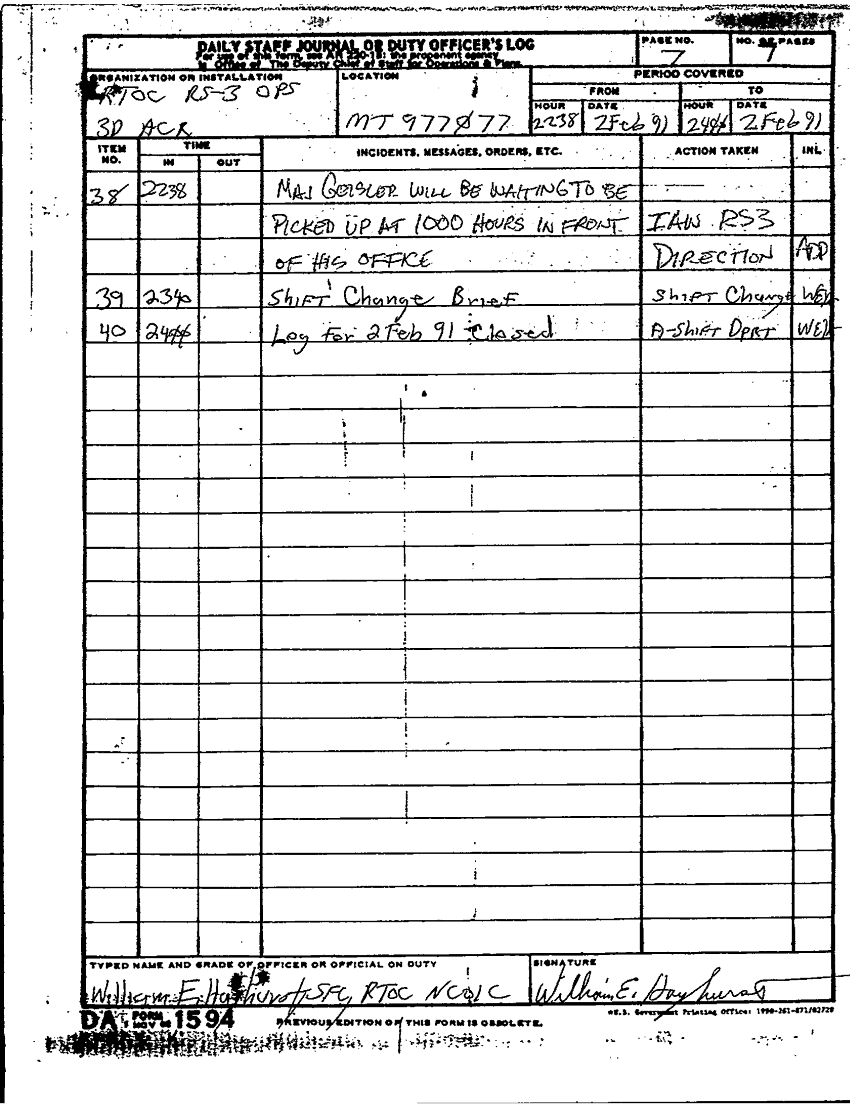 DAILY STAFF JOURNAL OR DUTY OFFICER'S LOG
For use of this form, see AR 220-15; the proponent agency
is Office of The Deputy Chief of Staff for Operations & Plans.
PAGE NO.
7
NO. OF PAGES
7
ORGANIZATION OR INSTALLATION
RTOC RS-3 OPS
3D ACR
LOCATION
MT 977Ø77
PERIOD COVERED
FROM TO
HOUR DATE HOUR DATE
2238 2Feb 91 24ØØ 2Feb 91
ITEM NO. TIME INCIDENTS, MESSAGES, ORDERS, ETC. ACTION TAKEN INL
IN OUT
38 2238 MAJ GEISLER WILL BE WAITING TO BE
PICKED UP AT 1000 HOURS IN FRONT IAW RS3
OF HIS OFFICE DIRECTION ADD
39 2340 Shift Change Brief Shift Change WEH
40 24ØØ Log For 2 Feb 91 Closed A-Shift Dprt WEH
TYPED NAME AND GRADE OF OFFICER OR OFFICIAL ON DUTY
William E. Hayhurst SFC, RTOC NCOIC
SIGNATURE
William E. Hayhurst
DA FORM 1594
PREVIOUS EDITION OF THIS FORM IS OBSOLETE.
*U.S. Government Printing Office: 1990-261-871/02720